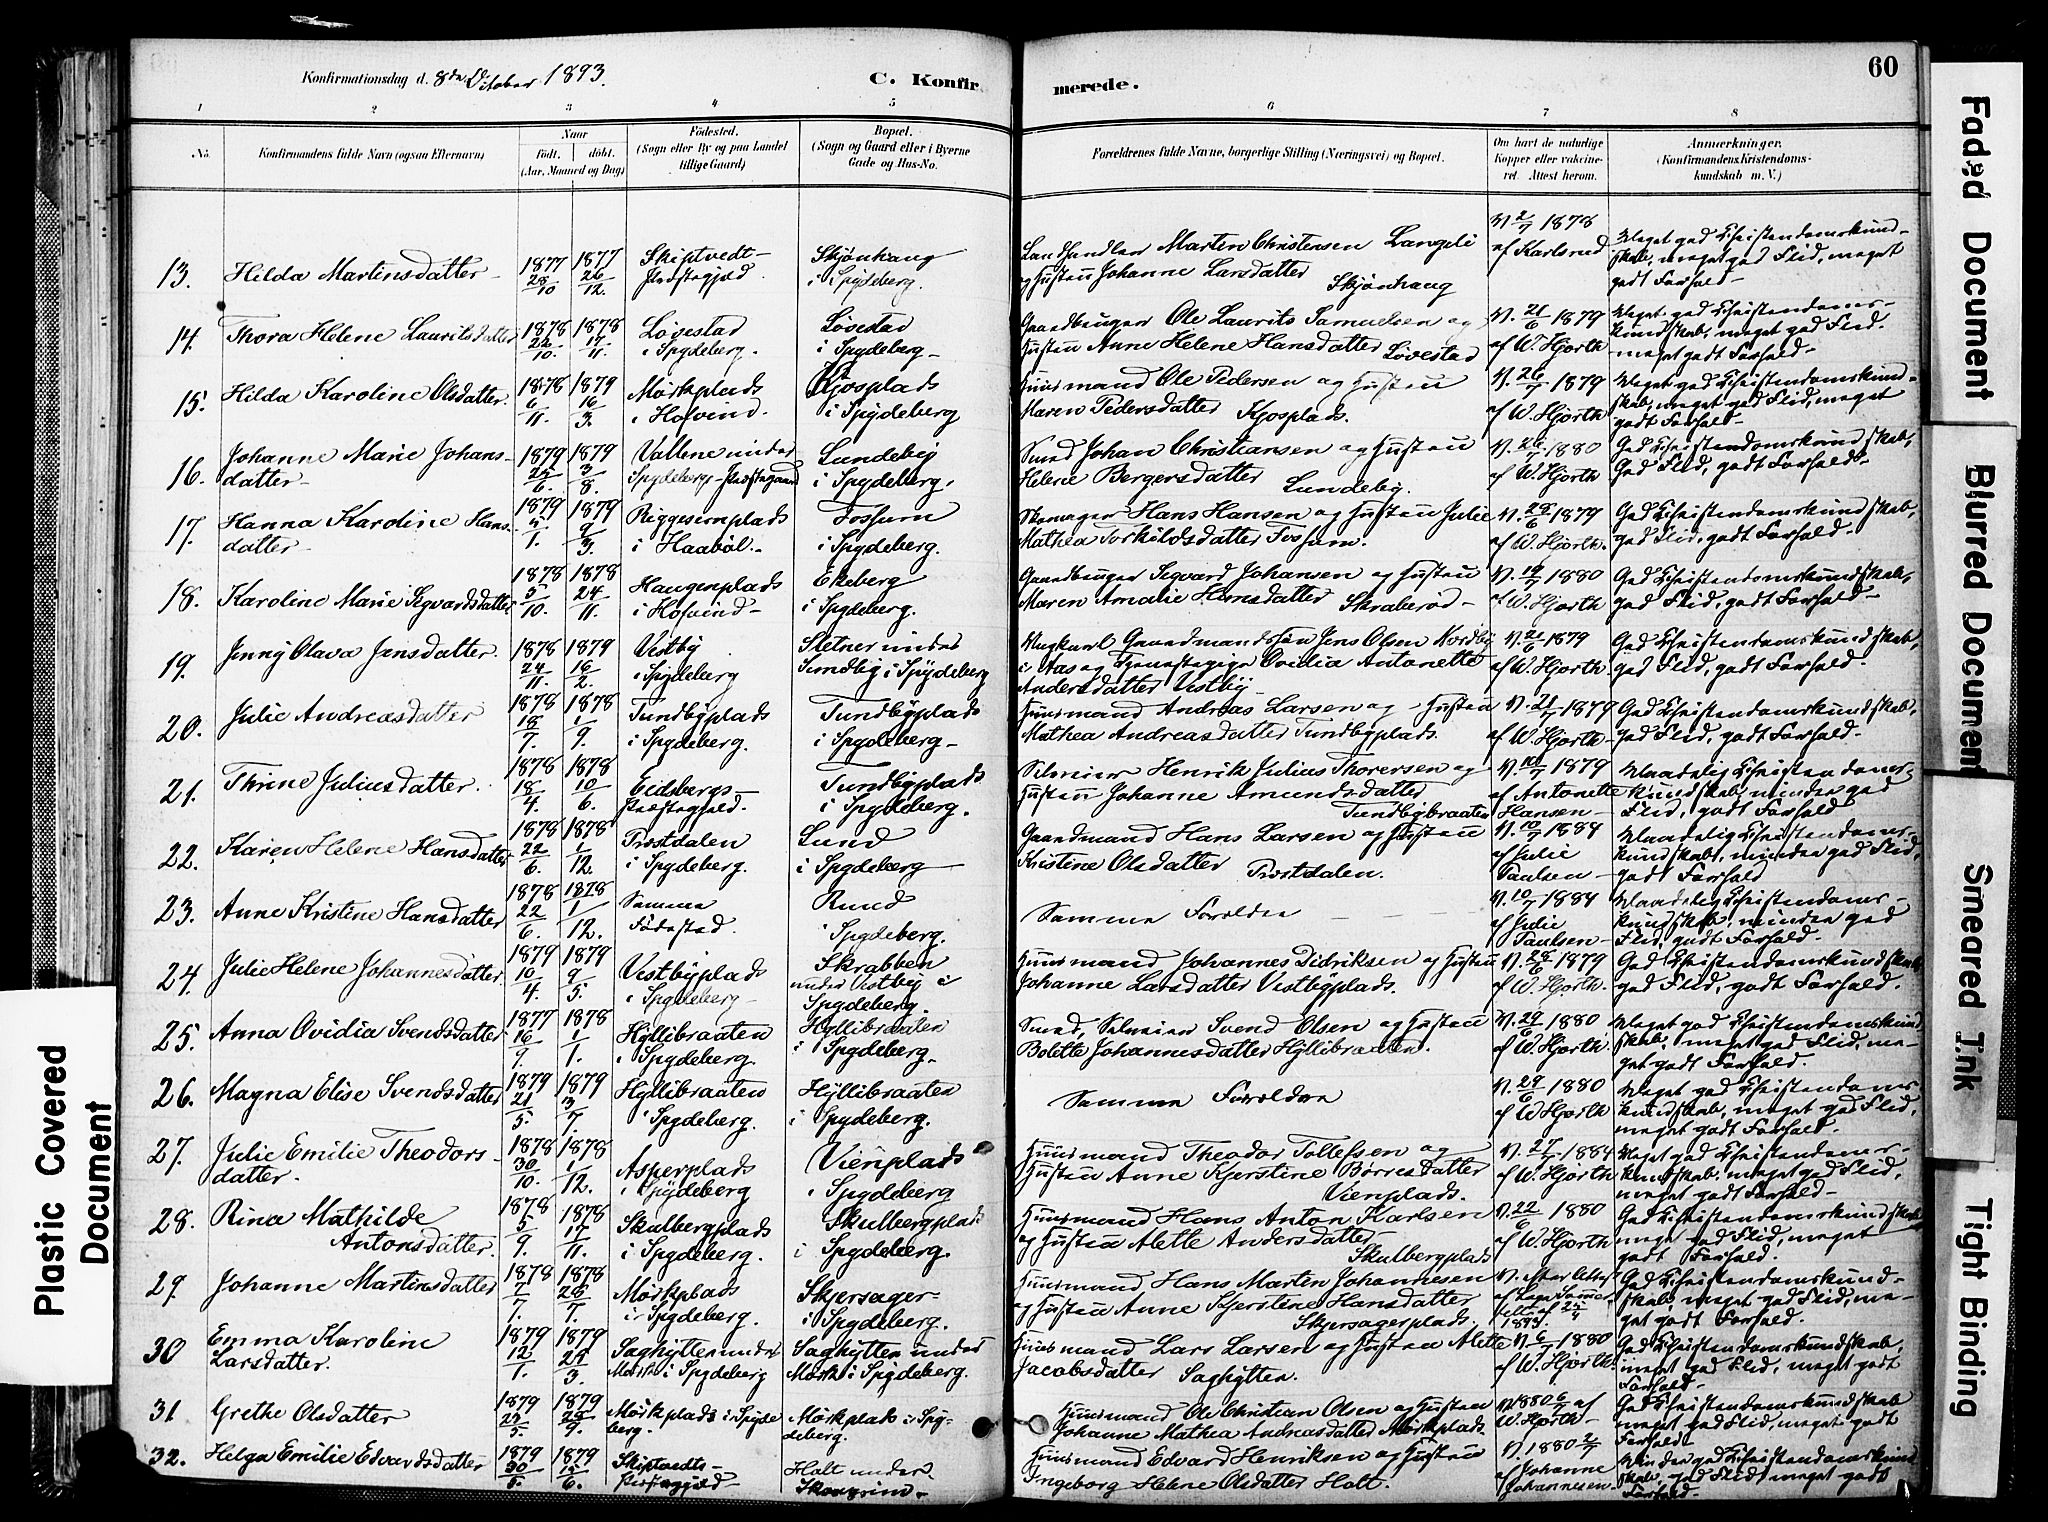 Konfirmationsdag d. 8de October 1893.
C. Konfirmerede.
60
1 2 3 4 5 6 7 8
No.
Konfirmandens fulde Navn (ogsaa Efternavn)
Naar
født. døbt.
(Aar, Maaned og Dag)
Fødested.
(Sogn eller By og paa Landet
tillige Gaard)
Bopæl.
(Sogn og Gaard eller i Byerne
Gade og Hus-No.
Forældrenes fulde Navne, borgerlige Stilling (Næringsvei) og Bopæl.
Om havt de naturlige
Kopper eller vakcine-
ret. Attest herom.
Anmærkninger.
(Konfirmandens Kristendoms-
kundskab m. V.)
13. Hilda Martinsdatter 1877 28/10 1877 26/12. Skiptvedt Præstegjæld. Skjønhaug i Spydeberg. Landhandler Martin Christensen Langeli og Hustru Johanne Larsdatter Skjønhaug V. 2/7 1878 af Karlsrud. Meget god Christendomskundskab, meget god Flid, meget godt Forhold
14. Thora Helene Lauritsdatter 1878 22/10. 1878 17/11. Løvestad i Spydeberg. Løvestad i Spydeberg Gaardbruger Ole Laurits Samuelsen og Hustru Anne Helene Hansdatter Løvestad V. 21/6 1879 af W. Hjorth Meget god Christendomskundskab, meget god Flid. meget godt Forhold
15. Hilda Karoline Olsdatter. 1878 6/11. 1879 16/3. Mørkplads i Hofvind. Kjosplads i Spydeberg Huusmand Ole Pedersen og Hustru Maren Pedersdatter Kjosplads. V. 26/7 1879 af W. Hjorth Meget god Christendomskundskab, meget god Flid, meget godt Forhold
16. Johanne Marie Johansdatter 1879 25/6. 1879 3/8. Vollene under Spydebergs Præstegaard Lundeby i Spydeberg. Smed Johan Christiansen og Hustru Helene Bergersdatter Lundeby. V. 26/7 1880 af W. Hjorth God Christendomskundskab, God Flid, godt Forhold
17. Hanna Karoline Hansdatter 1879 5/1. 1879 9/3. i Haabøl. Fossum i Spydeberg. Skomager Hans Hansen og Hustru Julie Mathea Torkildsdatter Fossum. V. 28/6 1879 af W. Hjorth. God Christendomskundskab, god Flid, godt Forhold.
18. Karoline Marie Sigvardsdatter 1878 5/10. 1878 24/11. Haugenplads i Hofvind Ekeberg i Spydeberg. Gaardbruger Sigvard Johansen og Hustru Maren Amalie Hansdatter Skraberød V. 19/7 1880 af W. Hjorth God Christendomskundskab, god Flid, godt Forhold
19. Jenny Olava Jensdatter. 1878 24/11. 1879 16/2. Vestby i Spydeberg Sletner under Sundby i Spydeberg Ungkarl Gaardmandssøn Jens Olsen Nordby i Aas og Tjenestepige Ovidia Antonette Andersdatter Vestby V. 21/6 1879 af W. Hjorth. God Christendomskundskab, god Flid, godt Forhold.
20. Julie Andreasdatter 1878 18/7. 1878 1/9. Tundbyplads i Spydeberg. Tundbyplads i Spydeberg Huusmand Andreas Larsen og Hustru Mathea Andreasdatter Tundbyplads. V. 21/7 1879 af W. Hjorth God Christendomskundskab, god Flid, godt Forhold.
21. Thrine Juliusdatter. 1878 18/4. 1878 10/6. Eidsbergs Præstegjeld. Tundbyplads i Spydeberg. Selveier Henrik Julius Thoresen og Hustru Johanne Amundsdatter Tundbybraaten V. 10/7 1879 af Antonette Hansen Maadelig Christendomskundskab, mindre god Flid, godt Forhold
22. Karen Helene Hansdatter 1878 22/6. 1878 1/12. Prostdalen i Spydeberg. Lund i Spydeberg Gaardmand Hans Larsen og Hustru Kristine Olsdatter Prostdalen. V. 10/7 1884 af Julie Paulsen Maadelig Christendomskundskab, mindre god Flid, godt Forhold
23. Anne Kristine Hansdatter 1878 22/6. 1878 1/12. Samme Fødested. Rund i Spydeberg. Samme Forældre V. 10/7 1884 af Julie Paulsen Maadelig Christendomskundskab, mindre god Flid, godt Forhold.
24. Julie Helene Johannesdatter 1879 10/4. 1879 9/5. Vestbyplads i Spydeberg Skrabben under Vestby i Spydeberg Huusmand Johannes Didriksen og Hustru Johanne Larsdatter Vestbyplads. V. 28/6 1879 af W. Hjorth. God Christendomskundskab, god Flid, godt Forhold.
25. Anna Ovidia Svendsdatter 1877 16/9. 1878 1/1. Hyllibraaten i Spydeberg. Hyllibraaten i Spydeberg. Smed, Selveier Svend Olsen og Hustru Bolette Johannesdatter Hyllibraaten. V. 29/6 1880 af W. Hjorth. Meget god Christendomskundskab, meget god Flid, meget godt Forhold.
26. Magna Elise Svendsdatter 1879 21/5. 1879 3/7. Hyllibraaten i Spydeberg. Hyllibraaten i Spydeberg. Samme Forældre V. 29/6 1880 af W Hjorth Meget god Christendomskundskab, meget god Flid, meget godt Forhold.
27. Julie Emilie Theodorsdatter. 1878 30/10. 1878 1/12. Asperplads i Spydeberg Vienplads i Spydeberg Huusmand Theodor Tollefsen og Hustru Anne Kjerstine Borresdatter Vienplads. V. 27/7 1884 af W. Hjorth Meget god Christendomskundskab, meget god Flid, meget godt Forhold
28. Rina Mathilde Antonsdatter. 1878 5/9. 1878 17/11. Skulbergplads i Spydeberg. Skulbergplads i Spydeberg. Huusmand Hans Anton Karlsen og Hustru Alette Andersdatter Skulbergplads V. 22/6 1880 af W. Hjorth God Christendomskundskab meget god Flid, meget godt Forhold.
29. Johanne Martinsdatter 1878 7/7. 1878 28/7. Mørkplads i Spydeberg. Skjersager i Spydeberg. Huusmand Hans Martin Johannesen og Hustru Anne Kjerstine Hansdatter Skjersagerplads. V. efter 1893. God Christendomskundskab, meget god Flid, meget godt Forhold.
30 Emma Karoline Larsdatter. 1879 12/1. 1879 29/3. Saghytten under Mørk i Spydeberg Saghytten under Mørk i Spydeberg. Huusmand Lars Larsen og Hustru Alette Jacobsdatter Saghytten. V. 6/7 1880 af W. Hjorth. God Christendomskundskab, meget god Flid, meget godt Forhold
31 Grethe Olsdatter 1879 23/5. 1879 28/9. Mørkplads i Spydeberg. Mørkplads i Spydeberg. Huusmand Ole Christian Olsen og Hustru Johanne Mathea Andreasdatter Mørkplads. V. 1880 6/7 af W. Hjorth God Christendomskundskab meget god Flid, meget godt Forhold
32. Helga Emilie Edvardsdatter 1879 30/5. 1879 15/6. Skiptvedts Præstegjæld Holt under Huusmand Edvard Henriksen og Hustru Ingeborg Helene Olsdatter Holt. V. 1880 2/7 af Johanne Johannesen Mindre god Christendomskundskab, god Flid, meget godt Forhold.
Plastic Covered
Document
Faded Document
Blurred Document
Smeared Ink
Tight Binding